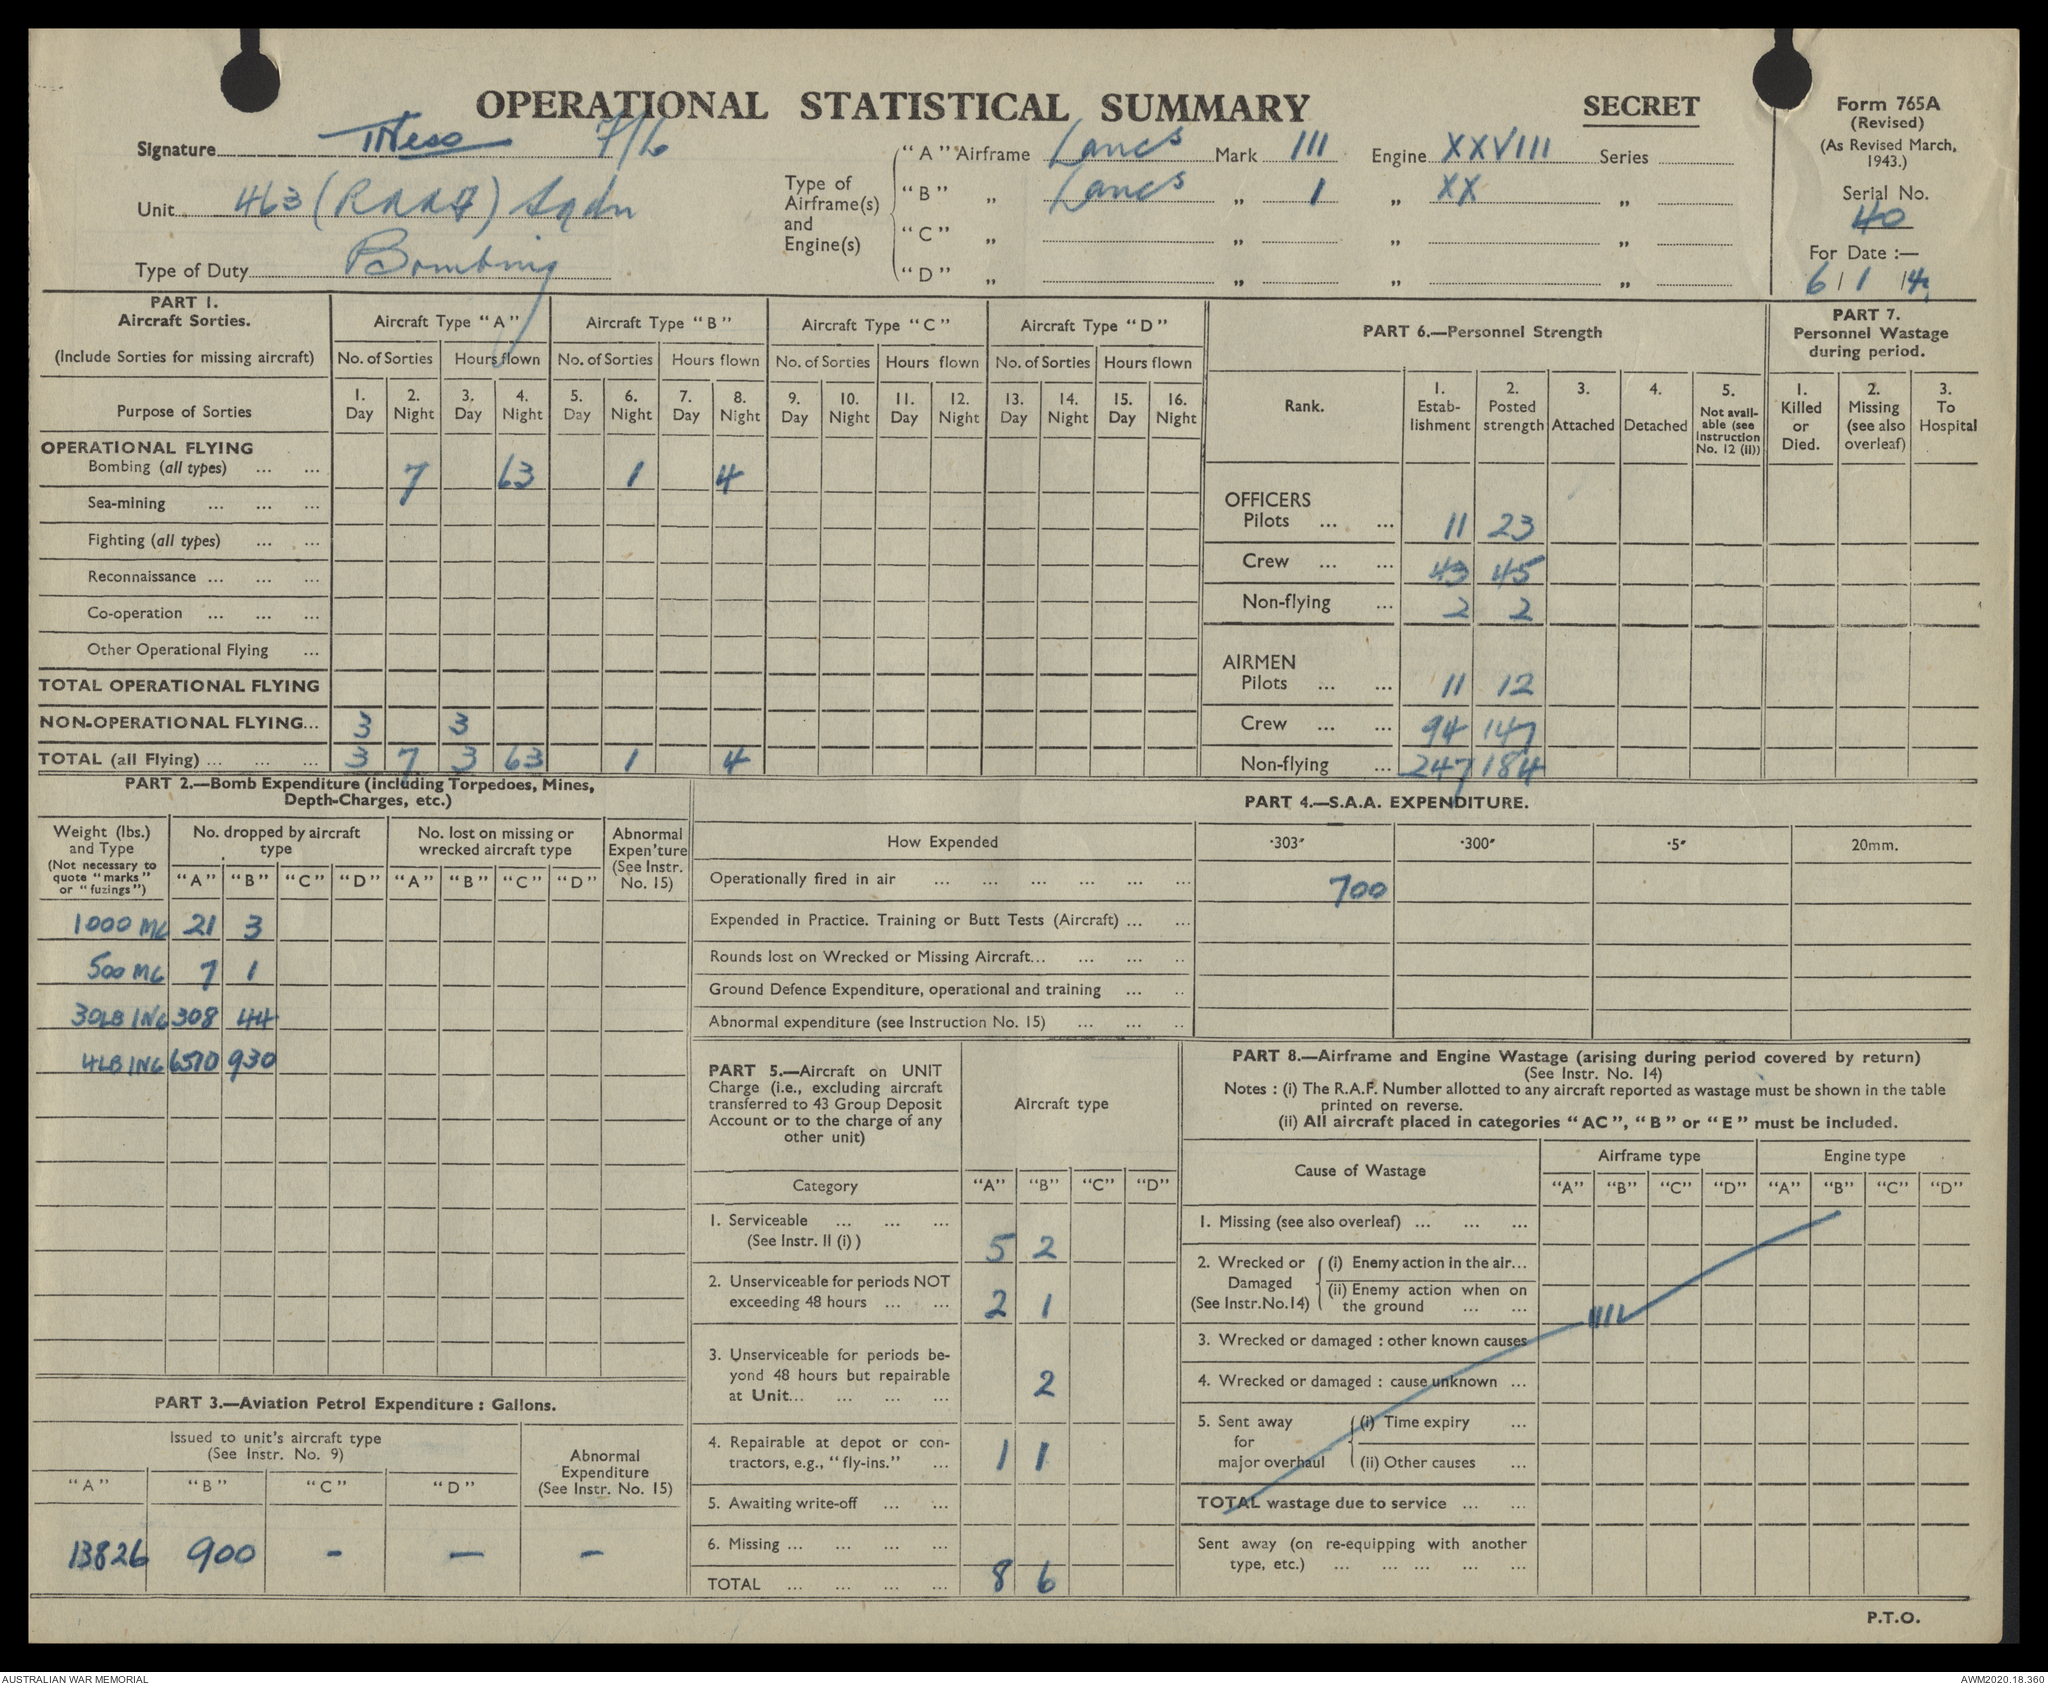 OPERATIONAL STATISTICAL SUMMARY
SECRET
Form 765A
(Revised)
(As Revised March,
1943.)
Serial No.
40
For Date :—
6 / 1 / 4
Signature
Unit 463 (RAAF) Sqdn
Type of Duty Bombing
Type of
Airframe(s)
and
Engine(s)
"A" Airframe Lancs Mark III Engine XXVIII Series
"B" „ Lancs „ 1 „ XX „
"C" „ „ „ „
"D" „ „ „ „
PART 1.
Aircraft Sorties.
(Include Sorties for missing aircraft)
Aircraft Type "A" Aircraft Type "B" Aircraft Type "C" Aircraft Type "D"
No. of Sorties Hours flown No. of Sorties Hours flown No. of Sorties Hours flown No. of Sorties Hours flown
Purpose of Sorties
1. Day 2. Night 3. Day 4. Night 5. Day 6. Night 7. Day 8. Night 9. Day 10. Night 11. Day 12. Night 13. Day 14. Night 15. Day 16. Night
OPERATIONAL FLYING
Bombing (all types) ... ... 7 63 1 4
Sea-mining ... ... ...
Fighting (all types) ... ...
Reconnaissance ... ... ...
Co-operation ... ... ...
Other Operational Flying ...
TOTAL OPERATIONAL FLYING
NON-OPERATIONAL FLYING... 3 3
TOTAL (all Flying) ... ... ... 3 7 3 63 1 4
PART 6.—Personnel Strength
Rank.
1. Estab-lishment
2. Posted strength
3. Attached
4. Detached
5. Not avail-able (see Instruction No. 12 (II))
OFFICERS
Pilots ... ... 11 23
Crew ... ... 43 45
Non-flying ... 2 2
AIRMEN
Pilots ... ... 11 12
Crew ... ... 94 147
Non-flying ... 247 184
PART 7.
Personnel Wastage
during period.
1. Killed or Died.
2. Missing (see also overleaf)
3. To Hospital
PART 2.—Bomb Expenditure (including Torpedoes, Mines,
Depth-Charges, etc.)
Weight (lbs.)
and Type
(Not necessary to
quote "marks"
or "fuzings")
No. dropped by aircraft
type
No. lost on missing or
wrecked aircraft type
Abnormal
Expen'ture
(See Instr.
No. 15)
"A" "B" "C" "D" "A" "B" "C" "D"
1000 MC 21 3
500 MC 7 1
30LB INC 308 44
4LB INC 6510 930
PART 4.—S.A.A. EXPENDITURE.
How Expended ·303" ·300" ·5" 20mm.
Operationally fired in air ... ... ... ... ... ... 700
Expended in Practice. Training or Butt Tests (Aircraft) ... ...
Rounds lost on Wrecked or Missing Aircraft... ... ... ..
Ground Defence Expenditure, operational and training ... ..
Abnormal expenditure (see Instruction No. 15) ... ... ..
PART 5.—Aircraft on UNIT
Charge (i.e., excluding aircraft
transferred to 43 Group Deposit
Account or to the charge of any
other unit)
Aircraft type
Category "A" "B" "C" "D"
1. Serviceable ... ... ...
(See Instr. II (i) ) 5 2
2. Unserviceable for periods NOT
exceeding 48 hours ... ... 2 1
3. Unserviceable for periods be-
yond 48 hours but repairable
at Unit... ... ... ... 2
4. Repairable at depot or con-
tractors, e.g., "fly-ins." ... 1 1
5. Awaiting write-off ... ...
6. Missing ... ... ... ...
TOTAL ... ... ... ... 8 6
PART 8.—Airframe and Engine Wastage (arising during period covered by return)
(See Instr. No. 14)
Notes : (i) The R.A.F. Number allotted to any aircraft reported as wastage must be shown in the table
printed on reverse.
(ii) All aircraft placed in categories "AC", "B" or "E" must be included.
Cause of Wastage
Airframe type Engine type
"A" "B" "C" "D" "A" "B" "C" "D"
1. Missing (see also overleaf) ... ... ...
2. Wrecked or Damaged (See Instr.No.14)
(i) Enemy action in the air...
(ii) Enemy action when on
the ground ... ...
3. Wrecked or damaged : other known causes
4. Wrecked or damaged : cause unknown ...
5. Sent away for major overhaul
(i) Time expiry ...
(ii) Other causes ...
TOTAL wastage due to service ... ...
Sent away (on re-equipping with another
type, etc.) ... ... ... ... ...
PART 3.—Aviation Petrol Expenditure : Gallons.
Issued to unit's aircraft type
(See Instr. No. 9)
Abnormal
Expenditure
(See Instr. No. 15)
"A" "B" "C" "D"
13826 900 - - -
P.T.O.
AUSTRALIAN WAR MEMORIAL
AWM2020.18.360